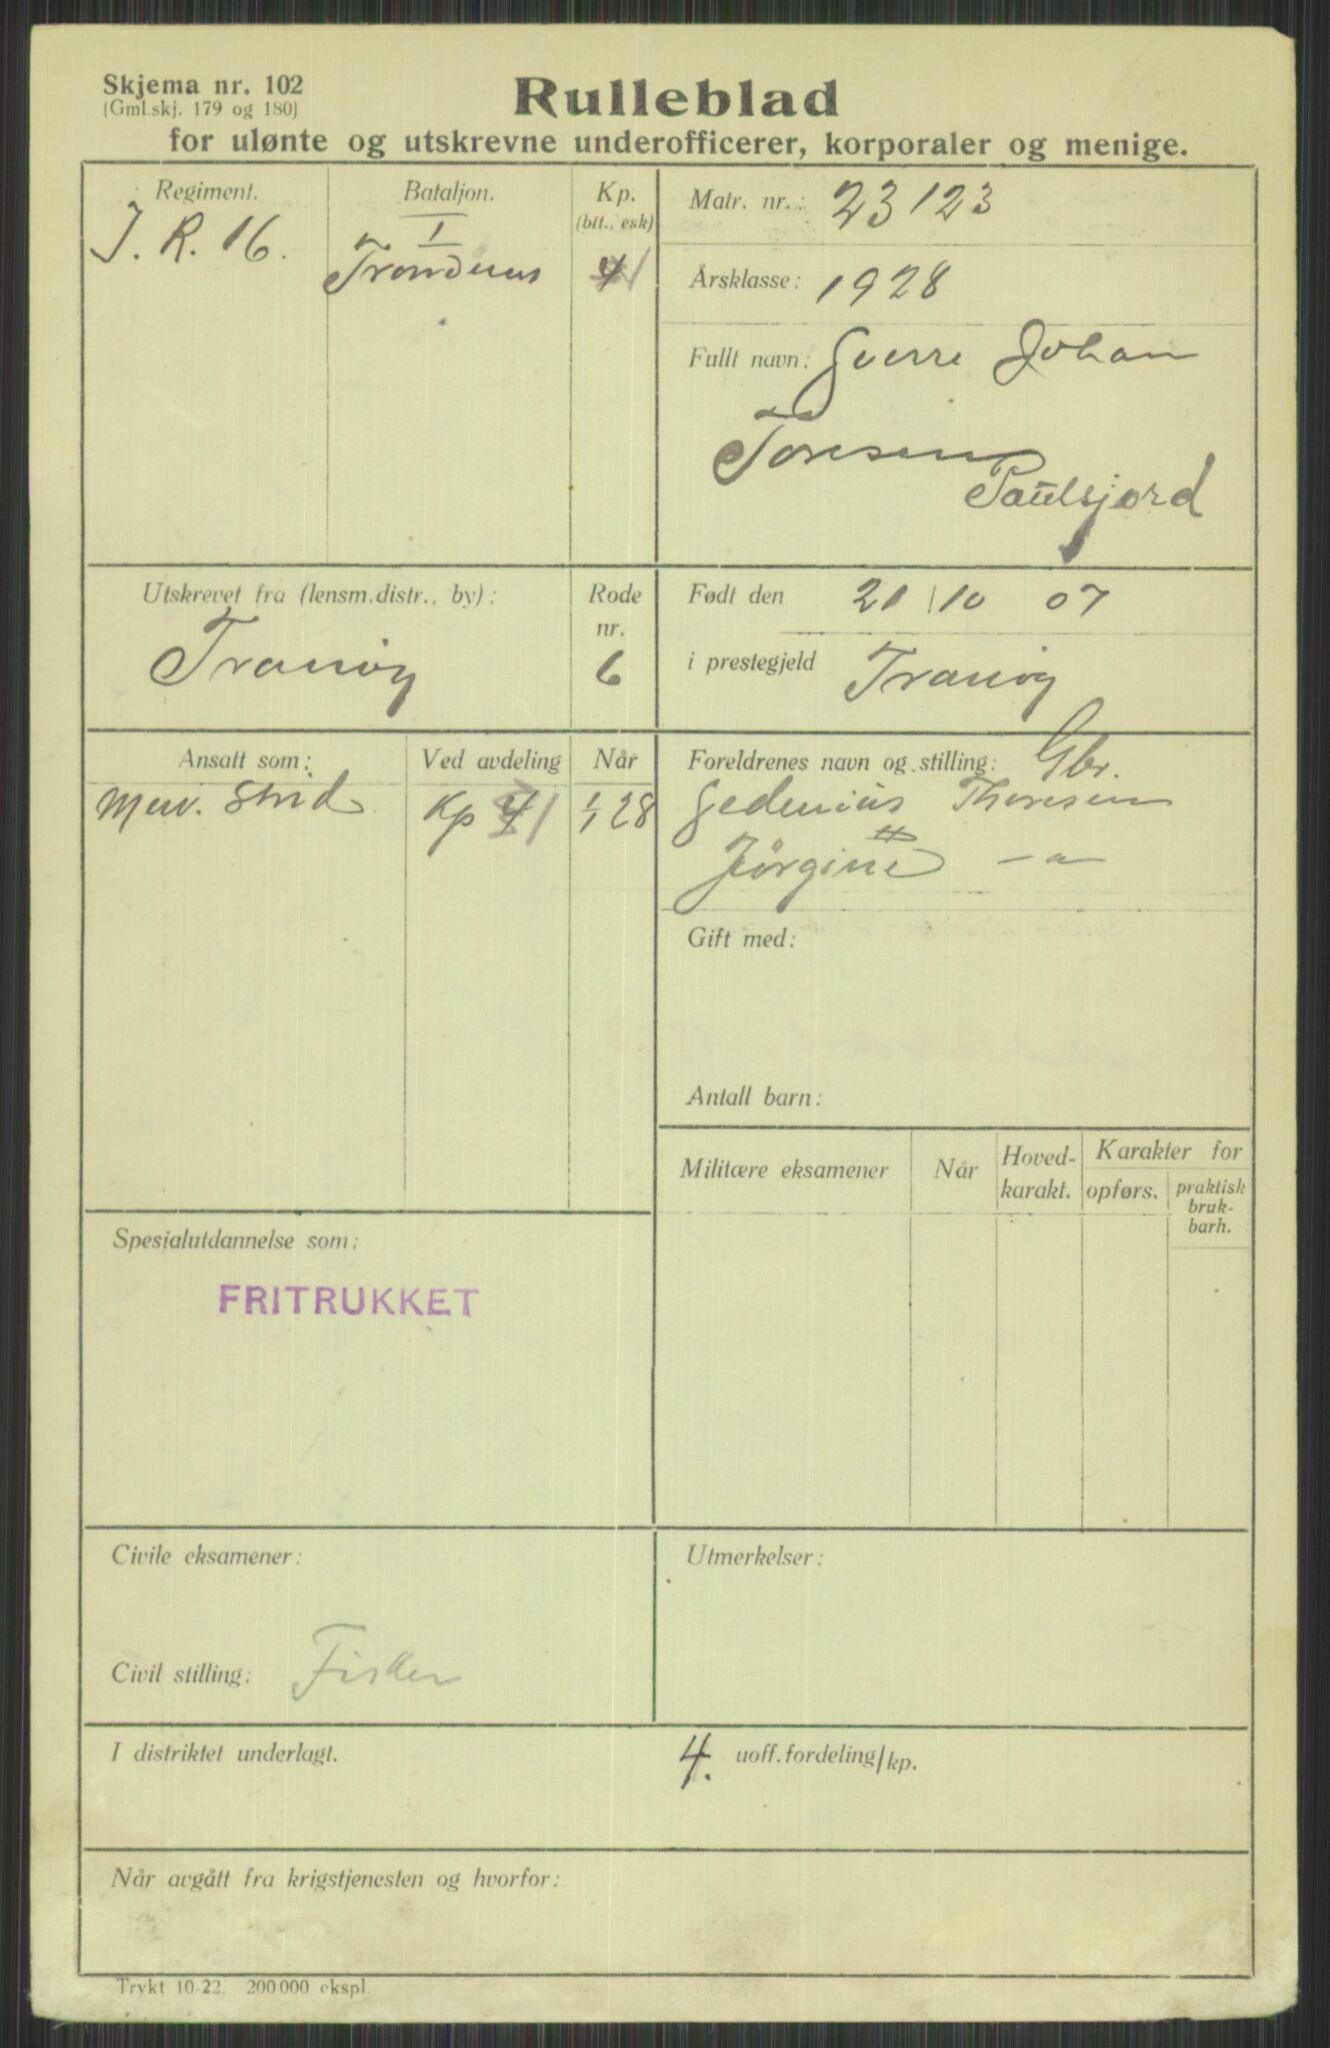 Skjema nr. 102
(Gml.skj. 179 og 180)
Rulleblad
for ulønte og utskrevne underofficerer, korporaler og menige.
Regiment.
J. R. 16.
Bataljon.
I
Kp.
(btt., esk)
4
Matr. nr.: 23123
Årsklasse: 1928
Fullt navn: Sverre Johan
Toresen
Paulsjord
Utskrevet fra (lensm.distr., by):
Tranøy
Rode
nr.
6
Født den 21/10 07
i prestegjeld Tranøy
Ansatt som:
Men. strid
Ved avdeling
Kp 4
Når
1/1 28
Foreldrenes navn og stilling: Gbr.
Gedenius Thoresen
Jørgine — " —
Gift med:
Antall barn:
Militære eksamener
Når
Hoved-
karakt.
Karakter for
opførs.
praktisk
bruk-
barh.
Spesialutdannelse som:
FRITRUKKET
Civile eksamener:
Civil stilling: Fisker
Utmerkelser:
I distriktet underlagt. 4. uoff.fordeling/kp.
Når avgått fra krigstjenesten og hvorfor:
Trykt 10-22. 200 000 ekspl.